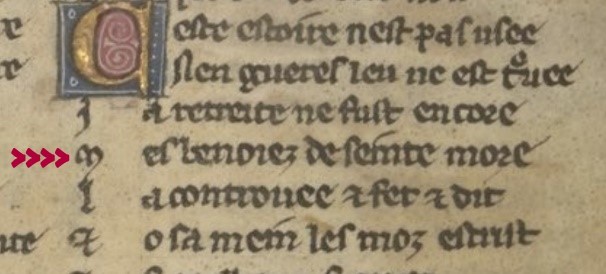 Ceste estoire nest pas usee
Nen gueres leu ne est tͦuee
J a retreite ne fust encore
M es benoiez de seinte more
L a controuee ⁊ fet ⁊ dit
⁊ o sa mein les moz escrit